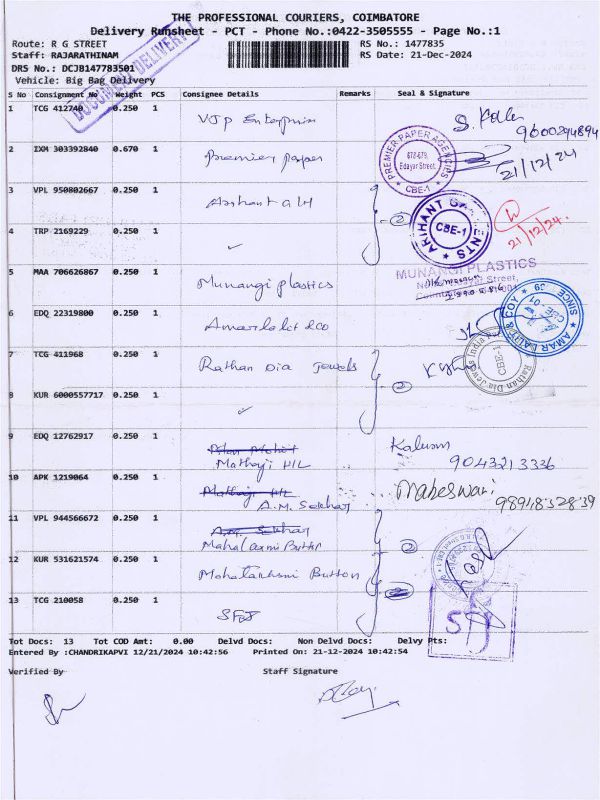 THE PROFESSIONAL COURIERS, COIMBATORE
Delivery Runsheet - PCT - Phone No.:0422-3505555 - Page No.:1
Route: R G STREET RS No.: 1477835
Staff: RAJARATHINAM RS Date: 21-Dec-2024
DRS No.: DCJB147783501
Vehicle: Big Bag Delivery
DOCUMENT DELIVERY
S No Consignment No Weight PCS Consignee Details Remarks Seal & Signature
1 TCG 412740 0.250 1 VJP Enterprises
9600294894
2 IXM 303392840 0.670 1 Premier Paper
PREMIER PAPER AGENCIES
Edayar Street,
CBE-1
21/12/24
3 VPL 950802667 0.250 1 Arihant all
2
ARIHANT GARMENTS
CBE-1
21/12/24.
4 TRP 2169229 0.250 1 ✓
MUNANGI PLASTICS
5 MAA 706626867 0.250 1 Munangi plastics
6 EDQ 22319800 0.250 1 Amarlalit &co
AMAR LALIT & COY SINCE
CBE - 01
7 TCG 411968 0.250 1 Rathan Dia Jewels
2
Rathan Dia Jewels India
CBE-1
8 KUR 6000557717 0.250 1 ✓
9 EDQ 12762917 0.250 1
Mathaji HL
9043213336
10 APK 1219064 0.250 1 Mathaji HL
A.M. Sekhar
Maheswari
9894832839
11 VPL 944566672 0.250 1 A.M. Sekhar
Mahalaxmi Button
2
12 KUR 531621574 0.250 1 Mahalakshmi Button
13 TCG 210058 0.250 1 SFJ
Tot Docs: 13 Tot COD Amt: 0.00 Delvd Docs: Non Delvd Docs: Delvy Pts:
Entered By :CHANDRIKAPVI 12/21/2024 10:42:56 Printed On: 21-12-2024 10:42:54
Verified By Staff Signature